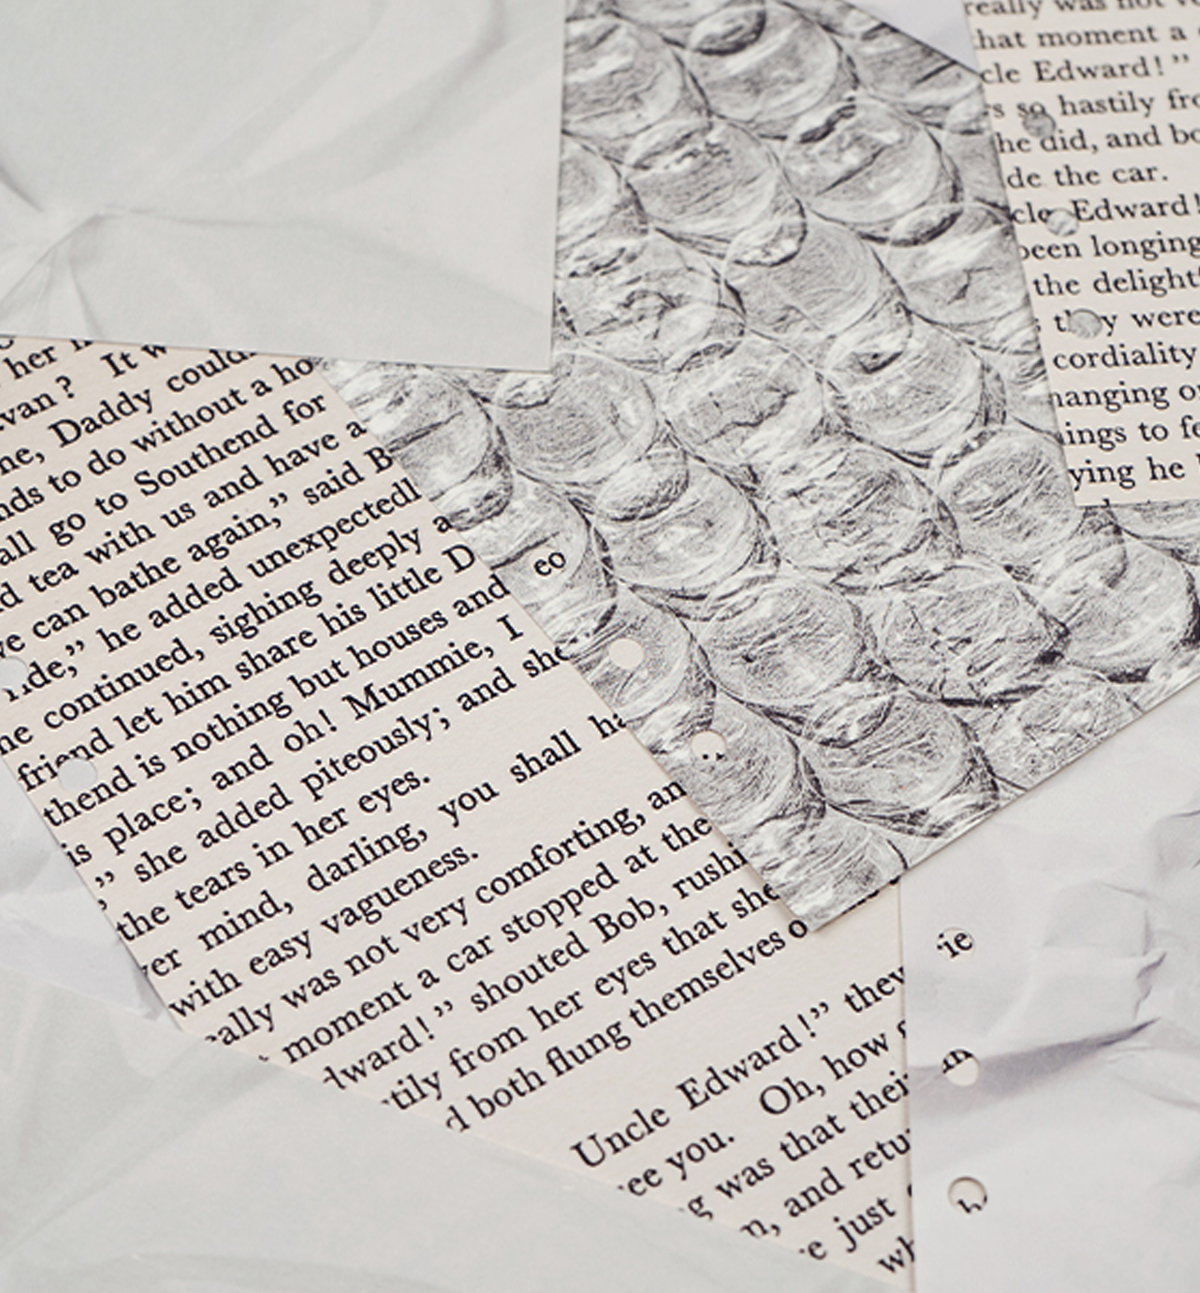 her
van? It w
ne, Daddy could
nds to do without a ho
all go to Southend for
d tea with us and have a
ve can bathe again,” said B
de,” he added unexpectedl
he continued, sighing deeply a
friend let him share his little D
thend is nothing but houses and
is place; and oh! Mummie, I
,” she added piteously; and she
the tears in her eyes.
er mind, darling, you shall ha
with easy vagueness.
eally was not very comforting, an
moment a car stopped at the
dward!” shouted Bob, rushi
tily from her eyes that she
d both flung themselves o
Uncle Edward!” they
ee you. Oh, how
g was that thei
n, and retu
e just
wh
eo
really was not ve
hat moment a
cle Edward!”
s so hastily fro
he did, and bo
de the car.
cle Edward!
been longing
the delight
they were
cordiality
hanging o
ings to fe
ying he
ie